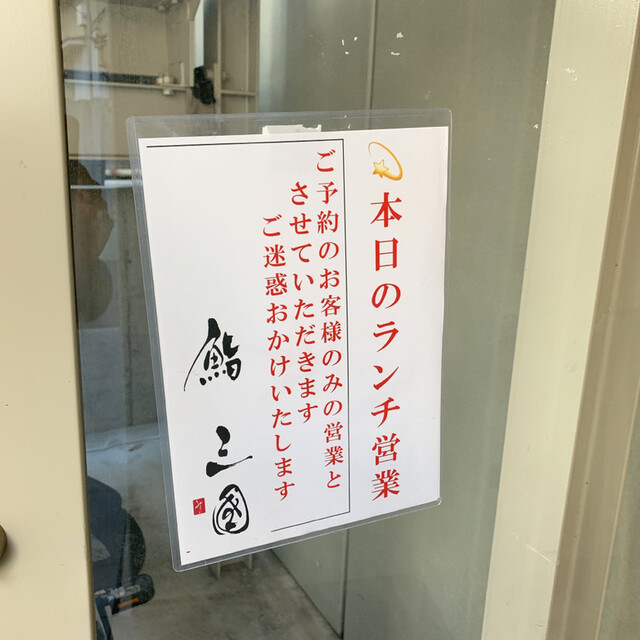 本日のランチ営業
ご予約のお客様のみの営業と
させていただきます
ご迷惑おかけいたします
鮨 三國